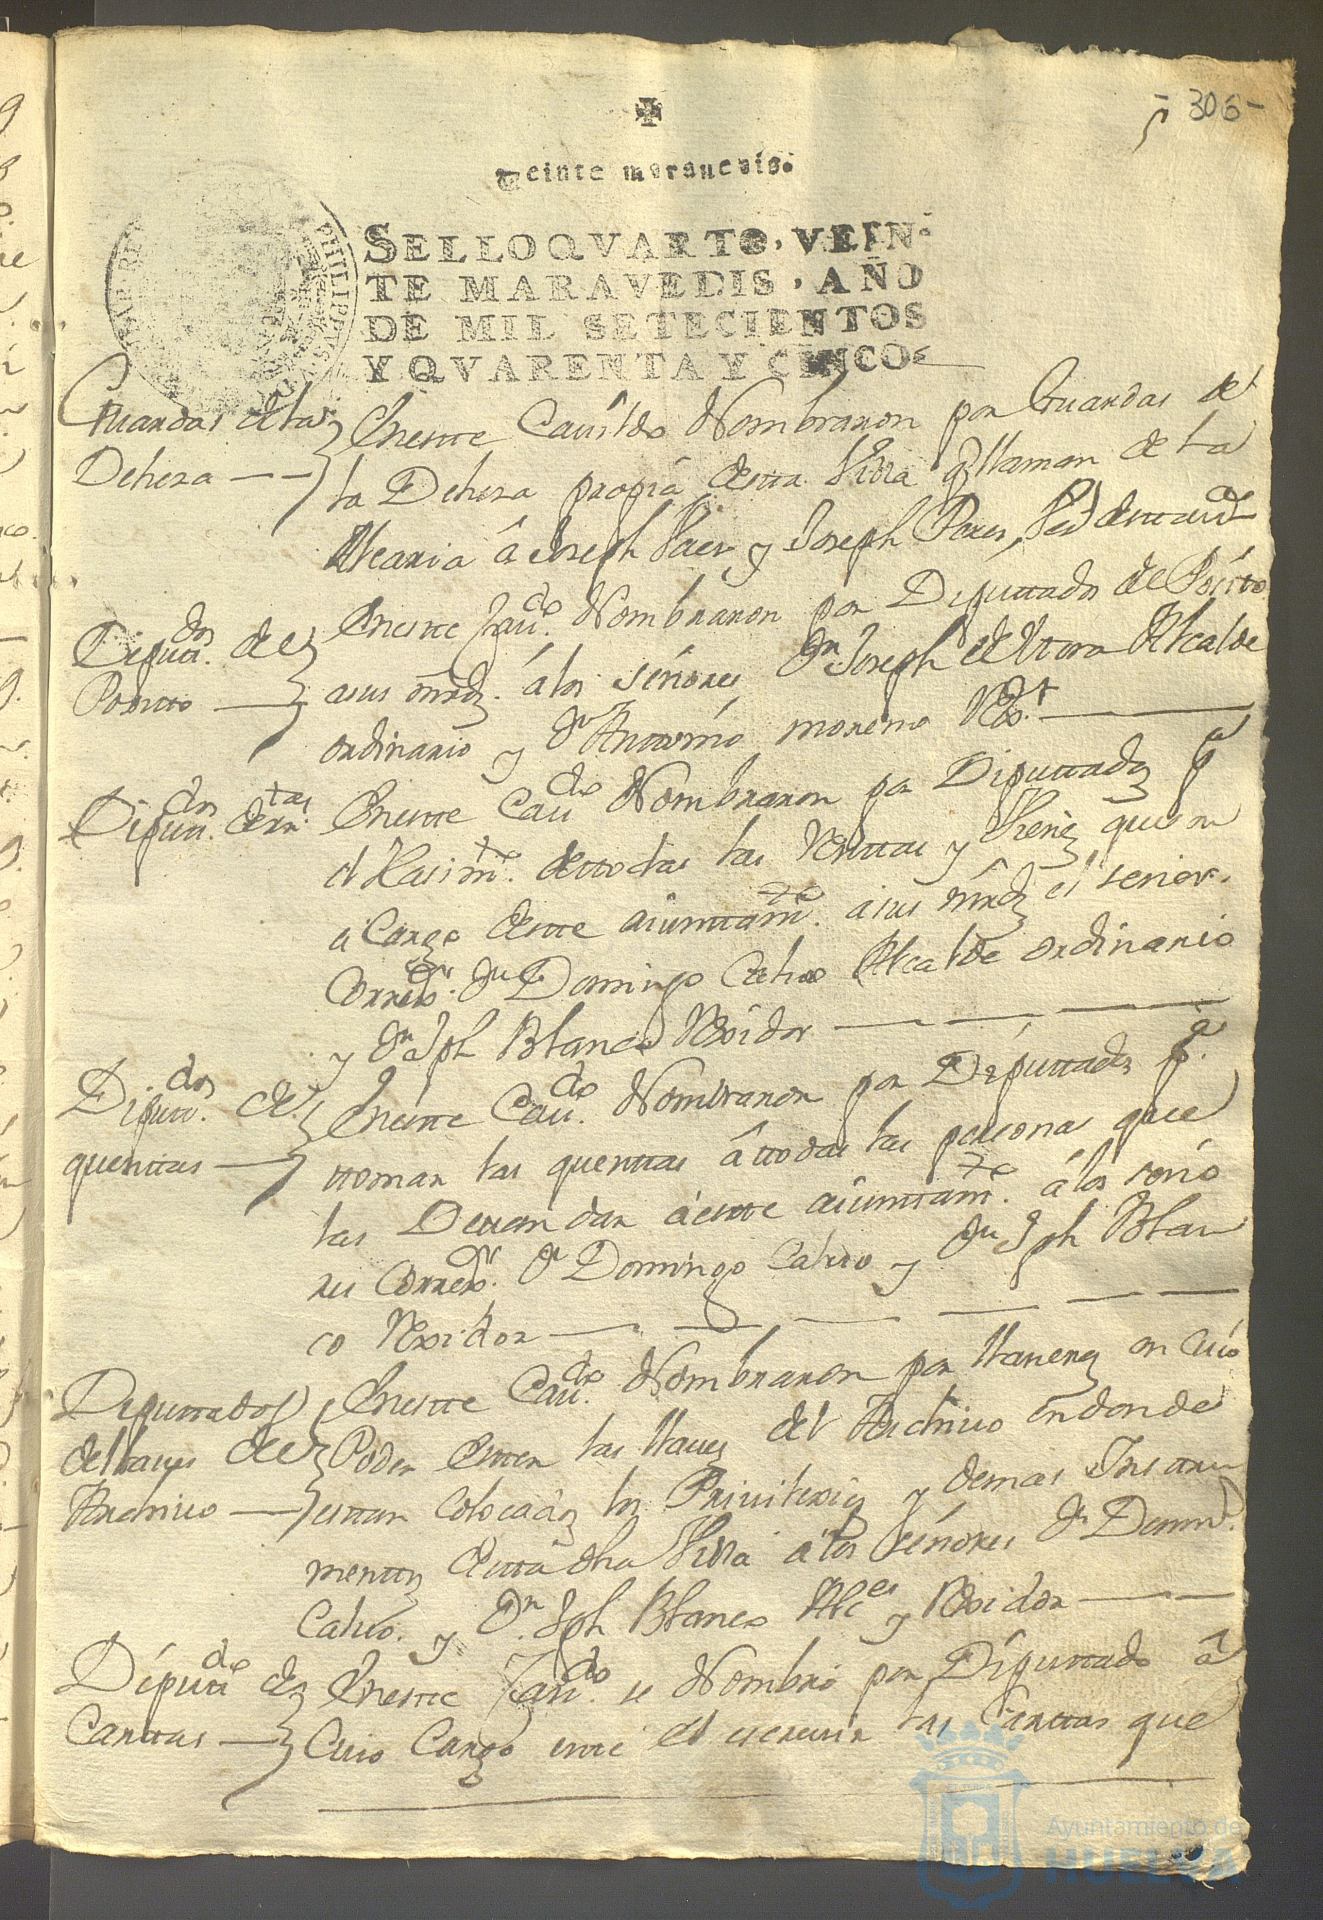 - 306 -
Veinte maravedis.
SELLO QVARTO, VEIN-
TE MARAVEDIS, AÑO
DE MIL SETECIENTOS
Y QVARENTA Y CINCO.
PHILIPPVS
Guardas de la
Deheza
Eneste Cauildo Nombraron por Guardas de
la Deheza propia desta Villa q llaman de la
Alcaria â Joseph Saez y Joseph Perez, Vezs desta
Diputt.dos de
Positto
Eneste Cau.do Nombraron por Diputtados de Posito
asus mrds. á los señores Dn Joseph de Mora Alcalde
ordinario y Dn Antonio moreno
Diputt.dos de rn.tas
Eneste Cau.do Nombraron por Diputtados pa
el Hasim.to de ttodas las Renttas y Vienes que son
a Cargo deste aiunttam.to asus mrds el señor
Corred.or Dn Domingo Calvo Alcalde ordinario
y Dn Jph Blanco Rexidor
Diputt.dos de
quenttas
Eneste Cau.do Nombraron por Diputtados pa
ttomar las quenttas â ttodas las personas que
las Deuan dar á este aiunttam.to á los seño
res Corred.or Dn Domingo Calvo y Dn Jph Blan
co Rexidor
Diputtados
de llaues de
Archivo
Eneste Cau.do Nombraron por llaueros en Cuio
Poder esten las llaues del Archivo en donde
esttan Colocados los Priuilexios y demas Instru
menttos destta dha Villa a los Señores Dn Domin.o
Calvo. y Dn. Jph Blanco Alc.es y Rexidor
Diputt.do de
Carttas
Eneste Cau.do se Nombró por Diputtado a
Cuio Cargo esté el escriuir las Carttas que
Ayuntamiento de
HUELVA